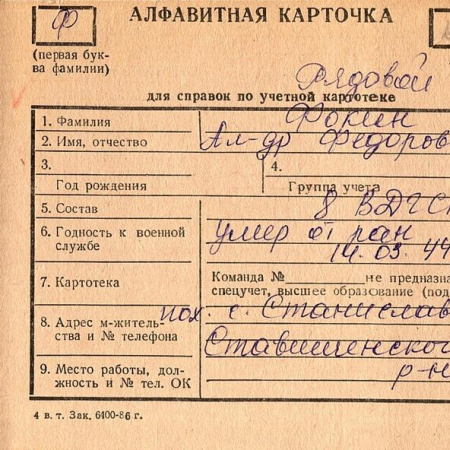 Ф
АЛФАВИТНАЯ КАРТОЧКА
(первая бук-
ва фамилии)
Рядовой
для справок по учетной картотеке
1. Фамилия Фокин
2. Имя, отчество Ал-др Федоров
3.
Год рождения
4.
Группа учета
5. Состав 8 ВДГС
6. Годность к военной
службе
умер от ран
14.03.44
7. Картотека
Команда № не предназна
спецучет, высшее образование (под
8. Адрес м-житель-
ства и № телефона
пох. с. Станислав
Ставишенског
р-н
9. Место работы, дол-
жность и № тел. ОК
4 в. т. Зак. 6400-86 г.